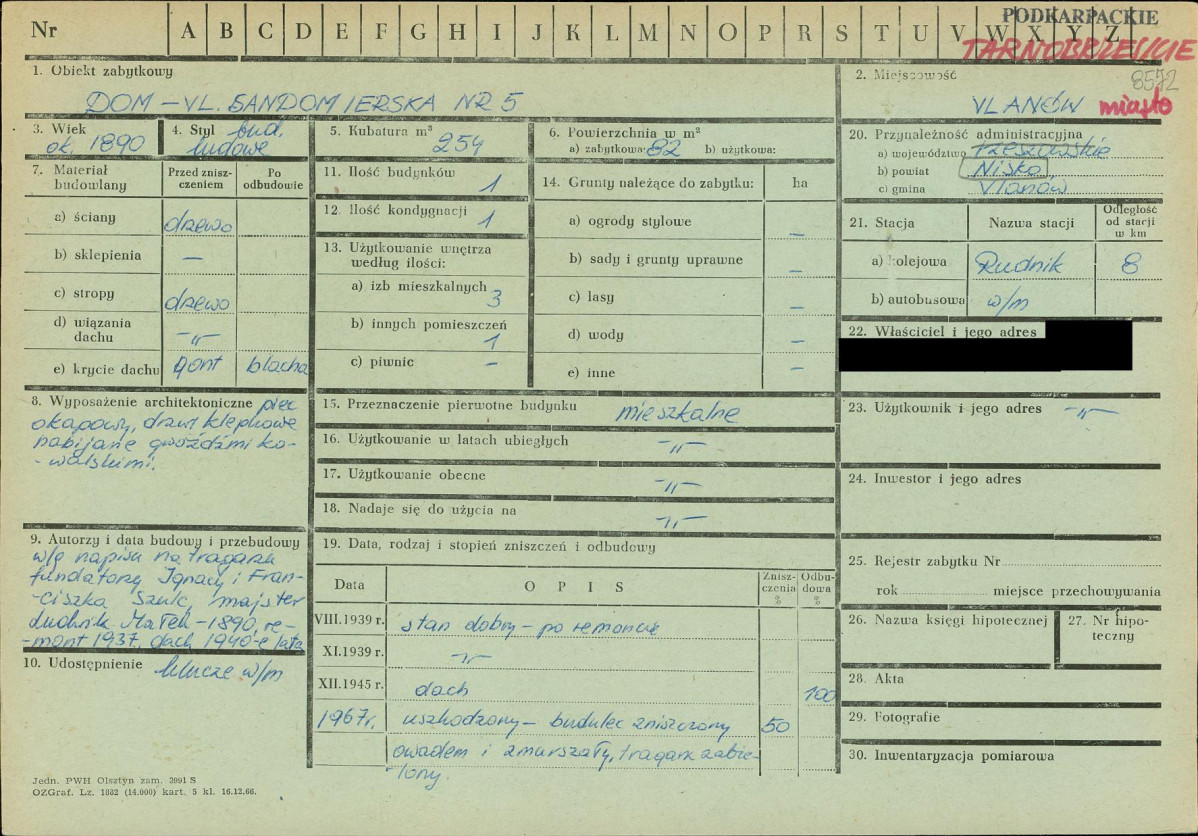 Nr A B C D E F G H I J K L M N O P R S T U V W X Y Z
PODKARPACKIE
TARNOBRZESKIE
1. Obiekt zabytkowy
DOM - UL. SANDOMIERSKA NR 5
2. Miejscowość
8572
ULANÓW miasto
3. Wiek
ok. 1890
4. Styl bud.
ludowe
5. Kubatura m³
254
6. Powierzchnia w m²
a) zabytkowa: 82 b) użytkowa:
7. Materiał
budowlany
Przed znisz-
czeniem
Po
odbudowie
a) ściany drzewo
b) sklepienia —
c) stropy drzewo
d) wiązania
dachu -"-
e) krycie dachu gont blacha
8. Wyposażenie architektoniczne piec
okapowy, drzwi klepkowe
nabijane gwoździmi ko-
-walskimi.
9. Autorzy i data budowy i przebudowy
w/g napisu na tragarzu
fundatorzy Ignacy i Fran-
-ciszka Szulc, majster
Ludwik Małek - 1890, re-
-mont 1937, dach 1940-e lata
10. Udostępnienie klucze w/m
11. Ilość budynków
1
12. Ilość kondygnacji
1
13. Użytkowanie wnętrza
według ilości:
a) izb mieszkalnych
3
b) innych pomieszczeń
1
c) piwnic —
14. Grunty należące do zabytku: ha
a) ogrody stylowe —
b) sady i grunty uprawne —
c) lasy —
d) wody —
e) inne —
15. Przeznaczenie pierwotne budynku mieszkalne
16. Użytkowanie w latach ubiegłych -"-
17. Użytkowanie obecne -"-
18. Nadaje się do użycia na -"-
19. Data, rodzaj i stopień zniszczeń i odbudowy
Data O P I S Znisz-
czenia
% Odbu-
dowa
%
VIII.1939 r. stan dobry - po remoncie
XI.1939 r. -"-
XII.1945 r. dach 100
1967r. uszkodzony - budulec zniszczony 50
owadem i zmurszały, tragarz zabie-
-lony.
20. Przynależność administracyjna
a) województwo rzeszowskie
b) powiat Nisko
c) gmina Ulanów
21. Stacja Nazwa stacji Odległość
od stacji
w km
a) kolejowa Rudnik 8
b) autobusowa w/m
22. Właściciel i jego adres
23. Użytkownik i jego adres -"-
24. Inwestor i jego adres
25. Rejestr zabytku Nr
rok miejsce przechowywania
26. Nazwa księgi hipotecznej
27. Nr hipo-
teczny
28. Akta
29. Fotografie
30. Inwentaryzacja pomiarowa
Jedn. PWH Olsztyn zam. 2991 S
OZGraf. Lz. 1832 (14.000) kart. 5 kl. 16.12.66.